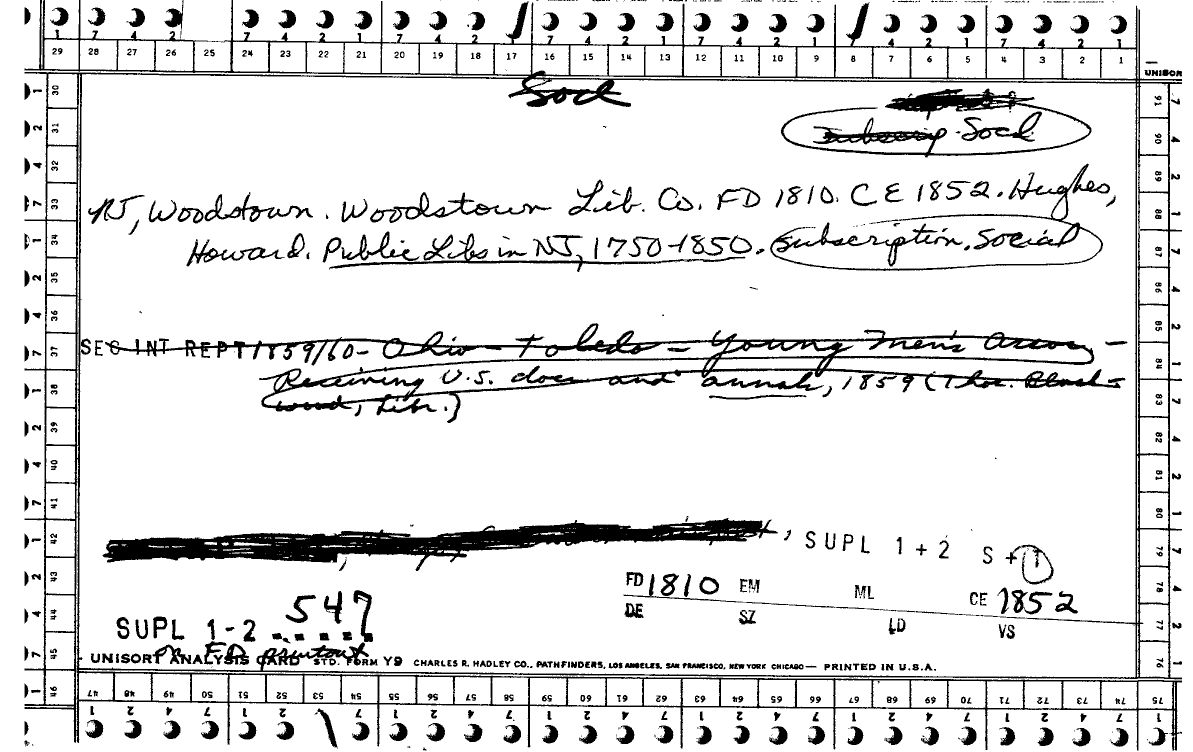 7 4 2 7 4 2 1 7 4 2 1 7 4 2 1 7 4 2 1 7 4 2 1
29 28 27 26 25 24 23 22 21 20 19 18 17 16 15 14 13 12 11 10 9 8 7 6 5 4 3 2 1
UNISOR
Socl
Subscrip. Socl
NJ, Woodstown. Woodstown Lib. Co. FD 1810. CE 1852. Hughes,
Howard. Public Libs in NJ, 1750-1850. Subscription. Social
SEC INT REPT 1859/60 - Ohio - Toledo - Young Men's Assoc -
Receiving U.S. docs and annals, 1859 (Thos. Black-
wood, Libr.)
SUPL 1 + 2 S + 1
FD 1810 EM ML CE 1852
DE SZ LD VS
547
SUPL 1-2
on FD printout
UNISORT ANALYSIS CARD STD. FORM Y9 CHARLES R. HADLEY CO., PATHFINDERS, LOS ANGELES, SAN FRANCISCO, NEW YORK CHICAGO — PRINTED IN U.S.A.
30 31 32 33 34 35 36 37 38 39 40 41 42 43 44 45 46
91 90 89 88 87 86 85 84 83 82 81 80 79 78 77 76 75
47 48 49 50 51 52 53 54 55 56 57 58 59 60 61 62 63 64 65 66 67 68 69 70 71 72 73 74